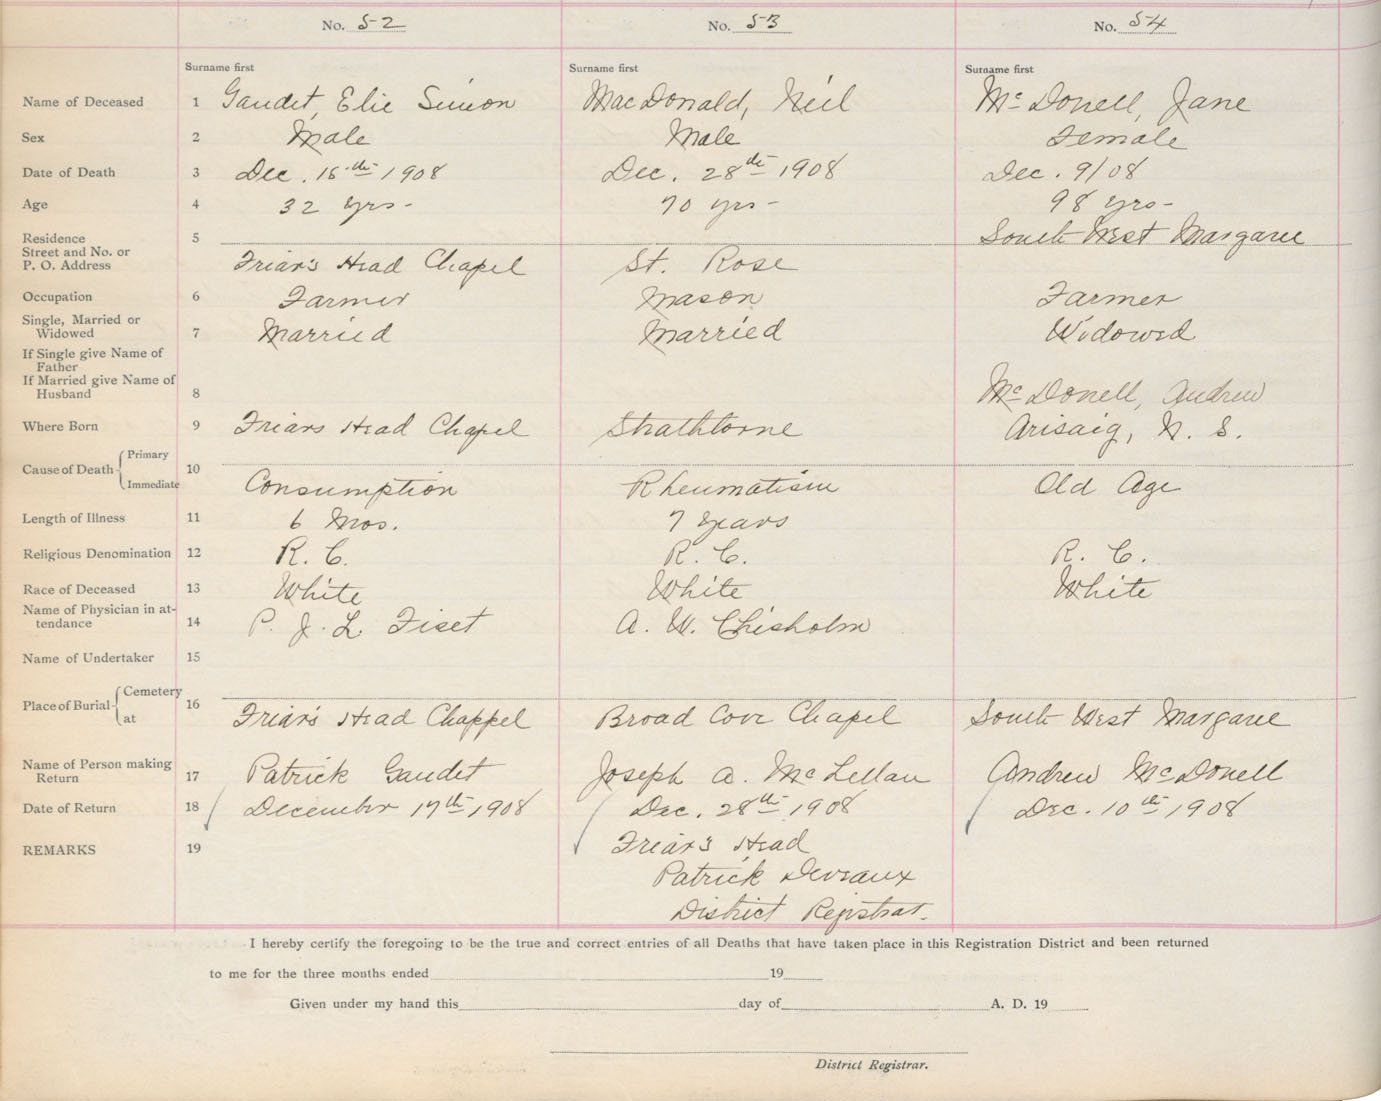 No. 52 No. 53 No. 54
Surname first Surname first Surname first
Name of Deceased 1 Gaudet, Elie Simon MacDonald, Neil McDonell, Jane
Sex 2 Male Male Female
Date of Death 3 Dec. 16th 1908 Dec. 28th 1908 Dec. 9/08
Age 4 32 yrs- 70 yrs- 98 yrs-
Residence 5 South West Margaree
Street and No. or
P. O. Address Friar's Head Chapel St. Rose
Occupation 6 Farmer Mason Farmer
Single, Married or
Widowed 7 Married Married Widowed
If Single give Name of
Father
If Married give Name of
Husband 8 McDonell, Andrew
Where Born 9 Friars Head Chapel Strathlorne Arisaig, N. S.
Cause of Death Primary 10
Immediate Consumption Rheumatism Old Age
Length of Illness 11 6 Mos. 7 years
Religious Denomination 12 R. C. R. C. R. C.
Race of Deceased 13 White White White
Name of Physician in at-
tendance 14 P. J. L. Fiset A. W. Chisholm
Name of Undertaker 15
Place of Burial Cemetery 16
at Friar's Head Chappel Broad Cove Chapel South West Margaree
Name of Person making
Return 17 Patrick Gaudet Joseph A. McLellan Andrew McDonell
Date of Return 18 December 17th 1908 Dec. 28th 1908 Dec. 10th 1908
REMARKS 19 Friar's Head
Patrick Deveaux
District Registrar.
I hereby certify the foregoing to be the true and correct entries of all Deaths that have taken place in this Registration District and been returned
to me for the three months ended 19
Given under my hand this day of A. D. 19
District Registrar.